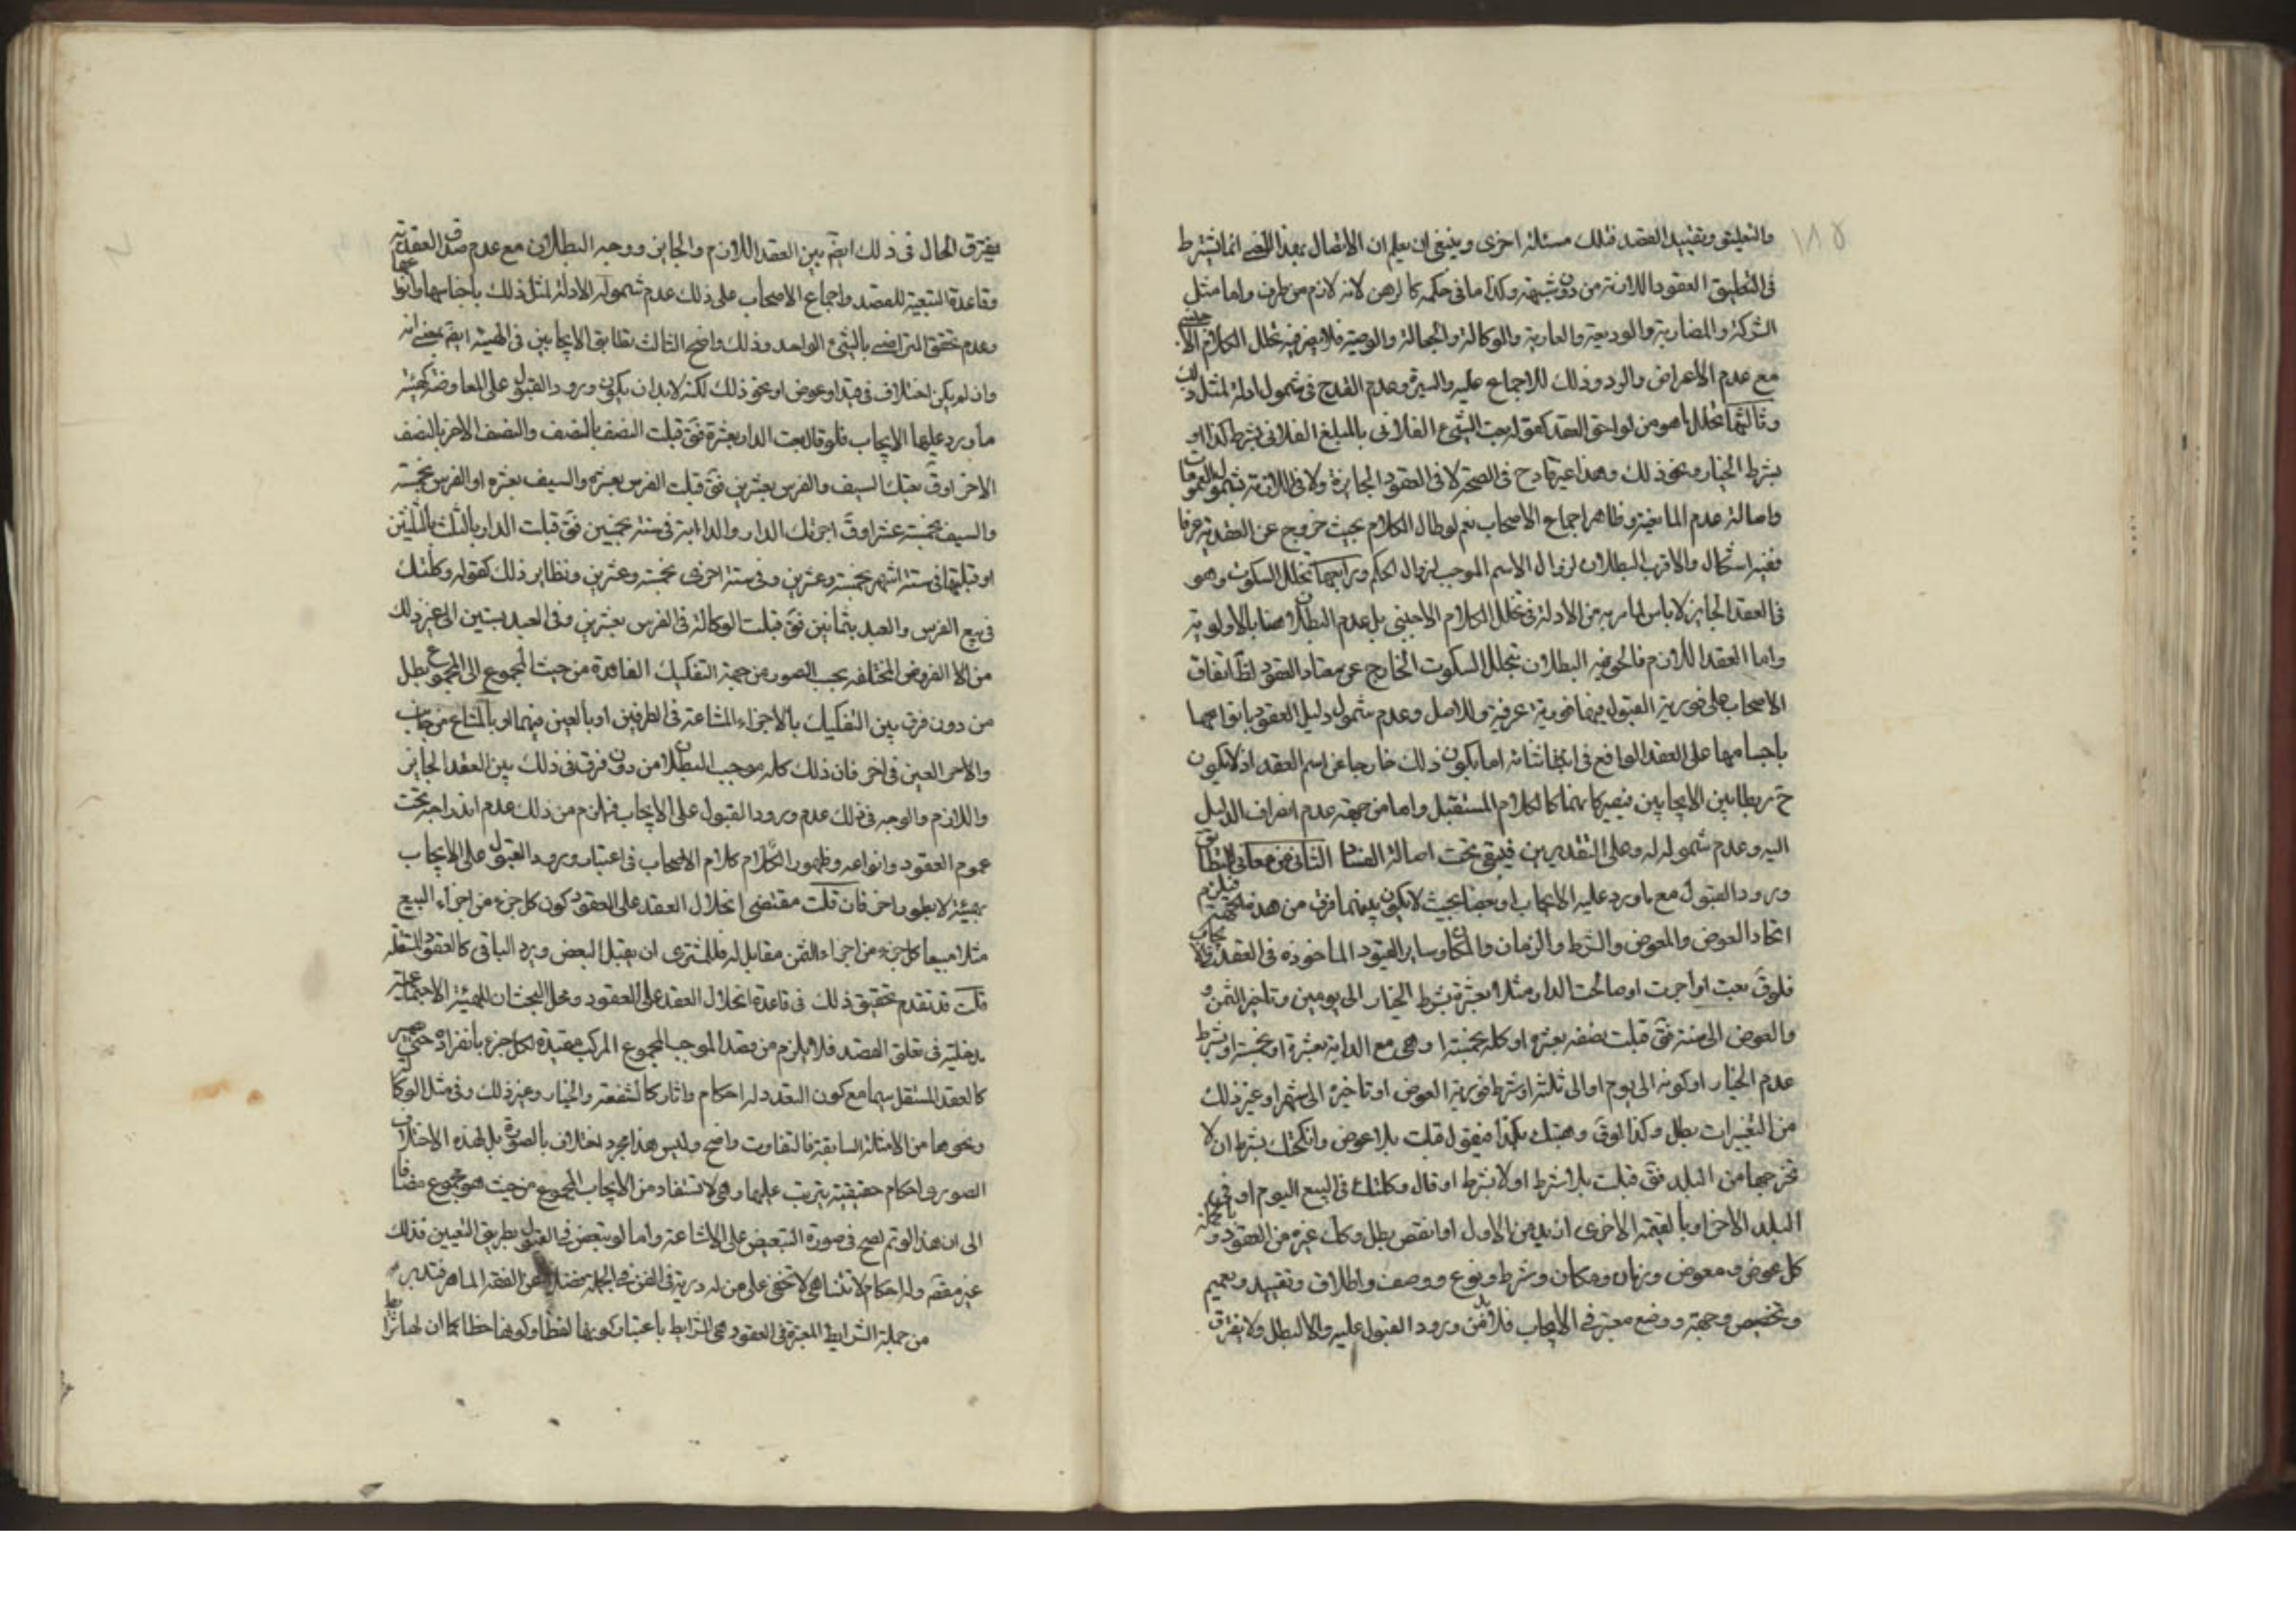 ١٨٥
والتعليق وتقييد العقد فتلك مسئلة اخرى وينبغي ان يعلم ان الاتصال بهذا المعنى انما يشترط
في التعليق العقود اللازمة من دون شبهة وكذا ما في حكمه كالرهن لانه لازم من طرف واما مثل
الشركة والمضاربة والوديعة والعارية والوكالة والجعالة والوصية فلا يضر فيه تخلل الكلام الاجنبي
مع عدم الاعراض والرد وذلك للاجماع عليه والسيرة وعدم القدح في شمول ادلة لمثل ذلك
وثالثها تخلل ما هو من لواحق العقد كقوله بعت الشيء الفلاني بالمبلغ الفلاني بشرط كذا او
بشرط الخيار ونحو ذلك وهذا غير قادح في الصحة لا في العقود الجايزة ولا في اللازمة لشمول العمومات
واصالة عدم المانعية وظاهر اجماع الاصحاب نعم لو طال الكلام بحيث خروج عن العقدية عرفا
ففيه اشكال والاقرب البطلان لزوال الاسم الموجب لزوال الحكم ورابعها تخلل السكوت وهو
في العقد الجايز لا باس لما مر من الادلة في تخلل الكلام الاجنبي بل عدم البطلان هنا بالاولوية
واما العقد اللازم فالحق فيه البطلان بتخلل السكوت الخارج عن معتاد العقود لظ اتفاق
الاصحاب على فورية القبول فيها فورية عرفية وللاصل وعدم شمول دليل العقود بانواعها
باجسامها على العقد الواقع في اثنائه اما بكون ذلك خارجا عن اسم العقد اذ لا يكون
ح ربطا بين الايجابين فيصير كانهما كالكلام المستقبل واما من جهة عدم انصراف الدليل
اليه وعدم شموله له وعلى التقديرين فيبقى تحت اصالة الفساد الثاني من معاني التطابق
ورود القبول مع ما ورد عليه الايجاب او بعضا بحيث لا يكون بينهما فرق من هذه الجهة فيلزم
اتحاد العوض والمعوض والشرط والزمان والمكان وساير القيود الماخوذة في العقد
فلو ق بعت او اجرت او صالحت الدار مثلا بعشرة بشرط الخيار الى يومين وتاخير الثمن و
والعوض الى سنة فق قبلت نصفه بعشرة او كله بخمسة او هي مع الدابة بعشرة او بخمسة او بشرط
عدم الخيار او كونه الى يوم او الى ثلثة او بشرط فورية العوض او تاخيره الى شهر او غير ذلك
من التغييرات بطل وكذا لو ق وهبتك بكذا فيقول قبلت بلا عوض وانكحتك بشرط ان لا
تخرجها من البلد فق قبلت بلا شرط او لا بشرط او قال وكلتك في البيع اليوم او في
البلد الاخر او بالقيمة الاخرى ازيد من الاول او انقص بطل وكك غيره من العقود وبالجملة
كل عوض ومعوض وزمان ومكان وشرط ونوع ووصف واطلاق وتقييد وتعميم
وتخصيص وجهة ووضع معتبر في الايجاب فلا بد من ورود القبول عليه والا لبطل ولا يفترق
يفترق الحال في ذلك ايضا بين العقد اللازم والجايز ووجه البطلان مع عدم صدق العقدية
وقاعدة التبعية للقصد واجماع الاصحاب على ذلك عدم شمول الادلة لمثل ذلك باجناسها وانواعها
وعدم تحقق التراضي بالشيء الواحد وذلك واضح الثالث تطابق الايجابين في الهيئة ايضا بمعنى انه
وان لم يكن اختلاف في قيد او عوض او نحو ذلك لكنه لابد ان يكون ورود القبول على المعاوضة كهيئة
ما ورد عليها الايجاب فلو قال بعت الدار بعشرة فق قبلت النصف بالنصف والنصف الاخر بالنصف
الاخر او ق بعتك السيف والفرس بعشرين فق قبلت الفرس بعشرة والسيف بعشرة او الفرس بخمسة
والسيف بخمسة عشر او ق اجرتك الدار والدابة في سنة بخمسين فق قبلت الدار بالثلث بالثلثين
او قبلتها في ستة اشهر بخمسة وعشرين وفي ستة اخرى بخمسة وعشرين ونظاير ذلك كقوله وكلتك
في بيع الفرس والعبد بثمانين فق قبلت الوكالة في الفرس بعشرين وفي العبد بستين الى غير ذلك
من الا الفروض المختلفه بحسب الصور من جهة التفكيك الفاقدة من حيث المجموع الى المجموع بطل
من دون فرق بين التفكيك بالاجزاء المشاعة في الطرفين او بالعين منهما او بالمشاع من جانب
والاخر العين في اخر فان ذلك كله موجب البطلان من دون فرق في ذلك بين العقد الجايز
واللازم والوجه في ذلك عدم ورود القبول على الايجاب فيلزم من ذلك عدم اندراجه تحت
عموم العقود وانواعه وظهور الكلام كلام الاصحاب في اعتبار ورود القبول على الايجاب
بهيئة لا بطور اخر فان قلت مقتضى انحلال العقد على العقود كون كل جزء من اجزاء المبيع
مثلا مبيعا كل جزء من اجزاء الثمن مقابل له فللمشترى ان يقبل البعض ويرد الباقي كالعقود المستقلة
قلت قد تقدم تحقيق ذلك في قاعدة انحلال العقد على العقود ومحل البحث ان للهيئة الاجتماعية
مدخلية في تعلق القصد فلا يلزم من قصد الموجب المجموع المركب مقيدة لكل جزء بانفراده حتى يصير
كالعقد المستقل سيما مع كون التعدد له احكام واثار كالشفعة والخيار وغير ذلك وفي مثل الوكالة
ونحوها من الامثلة السابقة فالتفاوت واضح وليس هذا مجرد اختلاف بالصورة بل لهذه الاختلاف
الصورى احكام حقيقية يترتب عليها وهي لا تستفاد من الايجاب المجموع من حيث هو مجموع مضافا
الى ان هذا لو تم لصح في صورة التبعيض على الاشاعة واما لو تبعض في القبول بطريق التعيين فذلك
غير مفهم وله احكام لا تتناهى لا تخفى على من له دربة في الفن في الجملة فضلا عن الفقه الماهر فتدبر
من جملة الشرايط المعتبرة في العقود هي الشرايط باعتبار كونها لفظا وكونها خطابا كما ان لها شرايط